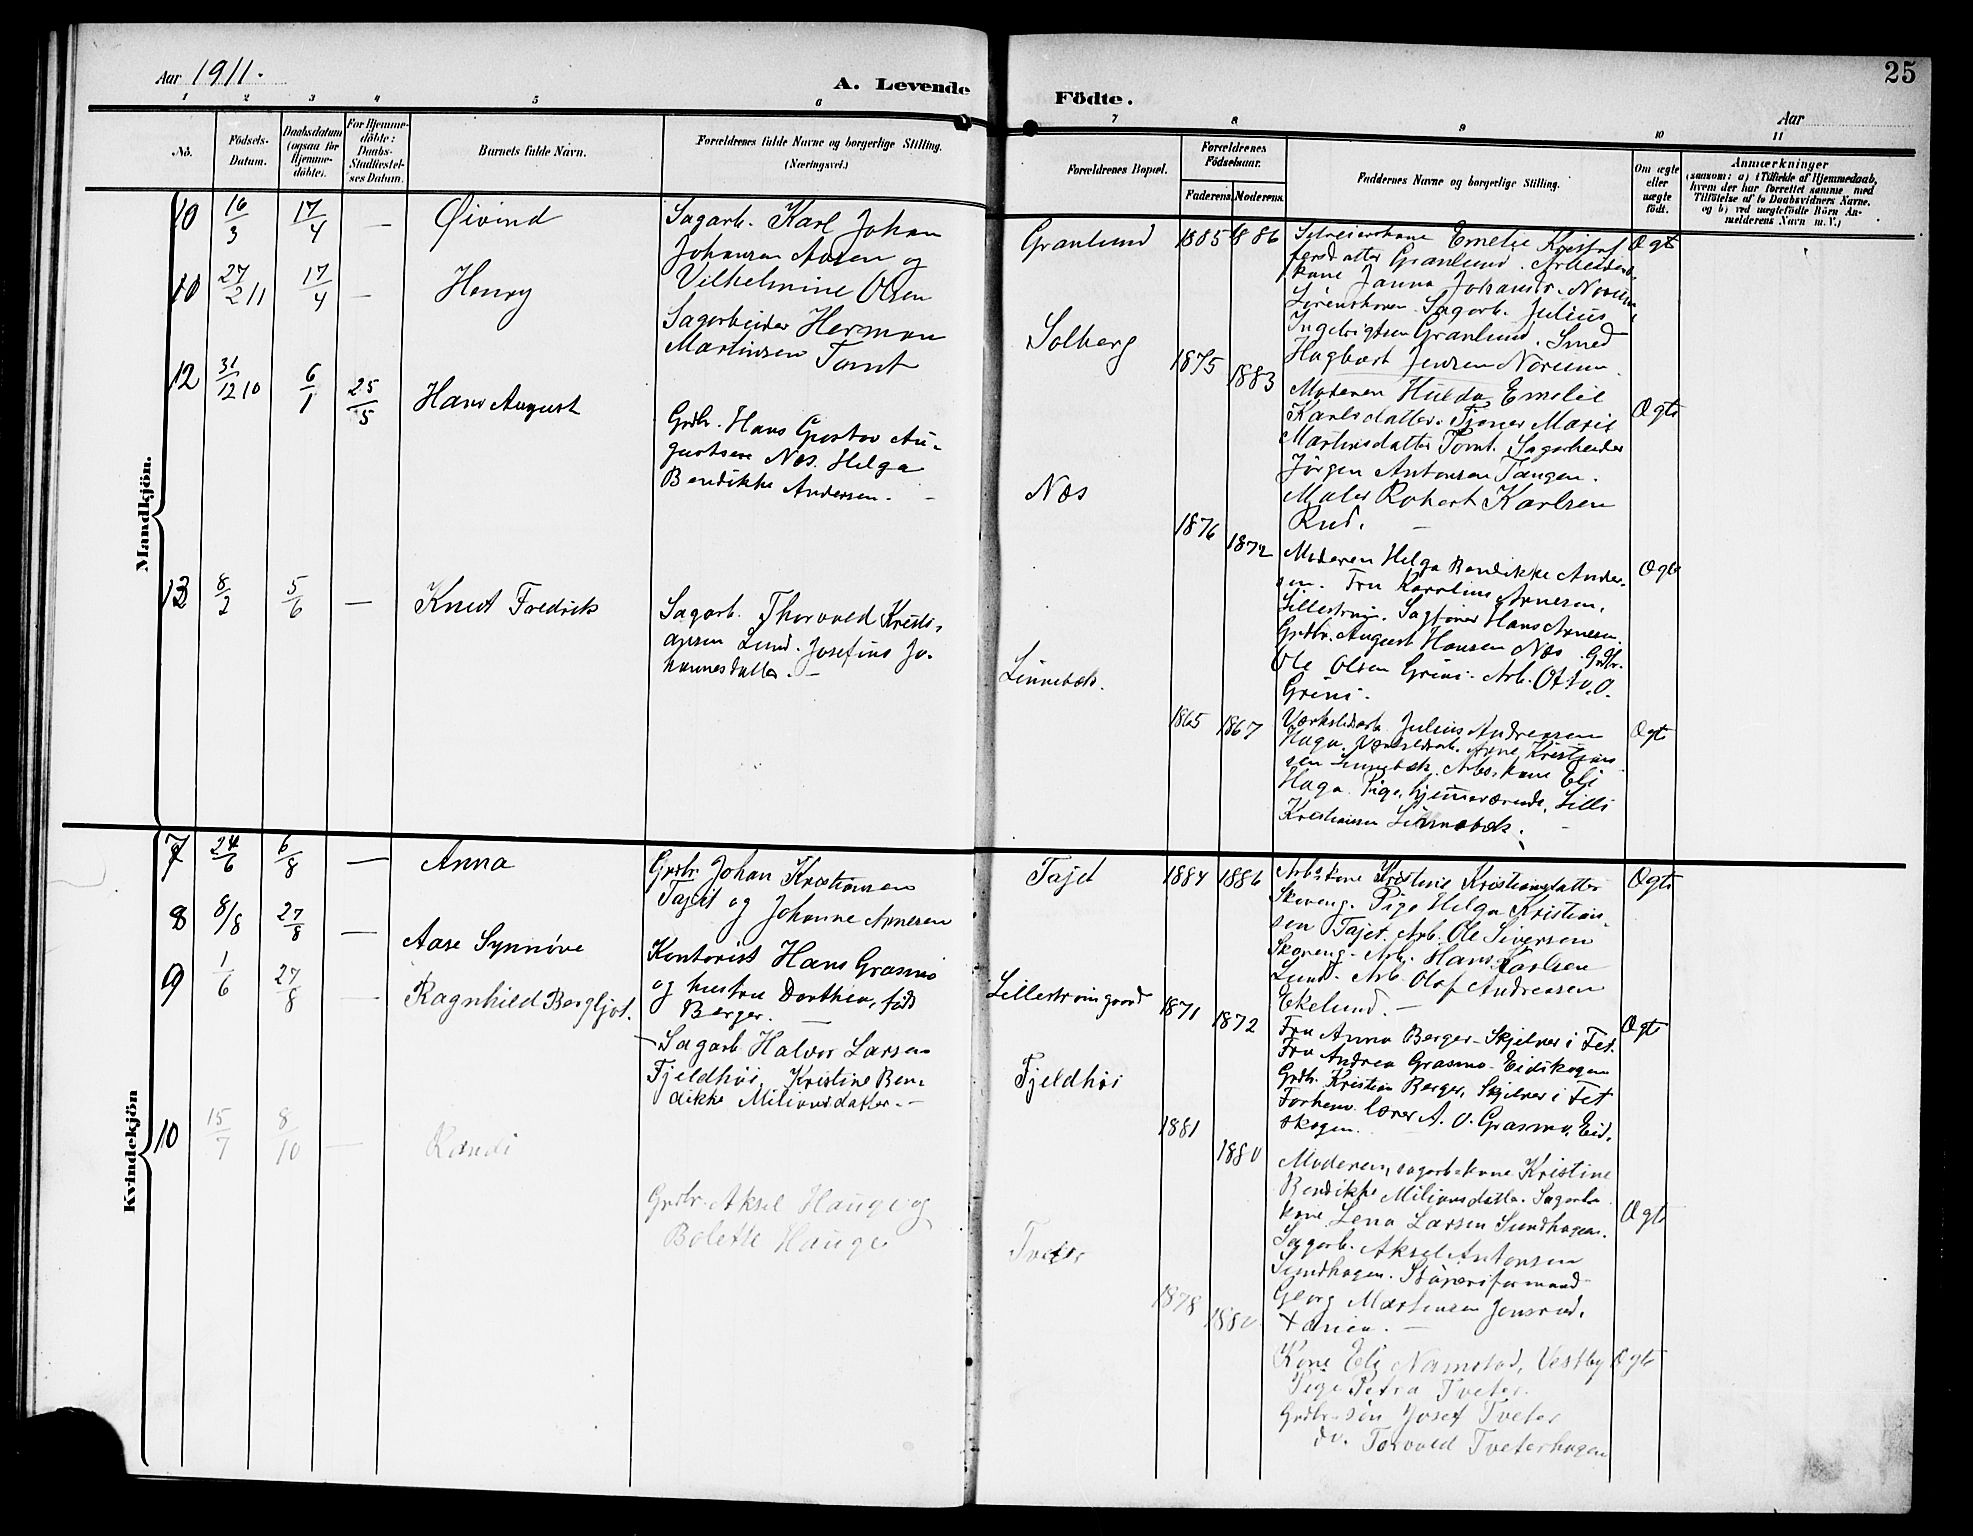 25
Aar 1911.
A. Levende Födte.
Aar
1 2 3 4 5 6 7 8 9 10 11
No.
Födsels-
Datum.
Daabsdatum
(ogsaa for
Hjemme-
döbte).
For Hjemme-
döbte:
Daabs-
Stadfæstel-
ses Datum.
Barnets fulde Navn.
Forældrenes fulde Navne og borgerlige Stilling.
(Næringsvei.)
Forældrenes Bopæl.
Forældrenes
Födselsaar.
Faderens Moderens
Faddernes Navne og borgerlige Stilling.
Om ægte
eller
uægte
födt.
Anmærkninger
(saasom: a) i Tilfælde af Hjemmedaab,
hvem der har forrettet samme, med
Tilföielse af to Daabsvidners Navne,
og b) ved uægtefödte Börn An-
melderens Navn m. V.)
Mandkjön.
10 16/3 17/4 — Øivind
Sagarb. Karl Johan
Johansen Aasen og
Vilhelmine Olsen
Granlund 1885 1886
Selveierkone Emelie Kristof
fersdatter Granlund. Arbeider
kone Janna Johansdr. Noreim
Sörenshaven. Sagarb. Julius
Ingebrigtsen Granlund. Smed
Hagbart Jensen Noreim.
Ægte
10 27/2 11 17/4 — Henry
Sagarbeider Herman
Martinsen Tomt
Solberg 1875 1883
Moderen Hulda Emelie
Karlsdatter. Tjener Marie
Martinsdatter Tomt. Sagarbeider
Jörgen Antonsen Tangen.
Maler Robert Karlsen
Rud. —
Ægte
12 31/12 10 6/1 25/5 Hans August
Grdbr. Hans Gustav Au-
gustsen Næs. Helga
Bendikke Andersen. —
Næs 1876 1872
Moderen Helga Bendikke Ander-
sen. Fru Karoline Arnesen,
Lilleström. Sagförer Hans Arnesen.
Grdbr. August Hansen Næs. Grdbr.
Ole Olsen Grini. Arb. Otto O.
Grini.
Ægte
13 8/2 5/6 — Knut Fredrik
Sagarb. Thorvald Kristi-
ansen Lund. Josefine Jo-
hannesdatter. —
Linnebæk. 1865 1867
Værkstedarb. Julius Andreasen
Haga. Værkstedarb. Arne Kristian
sen Linnebæk. Arb.kone Eli
Haga. Pige, hjemmeværende, Lilli
Kristiansen Linnebæk. —
Ægte
Kvindekjön
7 24/6 6/8 — Anna
Grdbr. Johan Kristiansen
Tajet og Johanne Arnesen
Tajet 1884 1886
Arb.kone Kristine Kristiansdatter
Skoveng. Pige Helga Kristian
sen Tajet. Arb. Ole Siversen
Skoveng. Arb. Hans Karlsen
Lund. Arb. Olaf Andreassen
Ekelund. —
Ægte
8 8/8 27/8 — Aase Synnöve
Kontorist Hans Grasmo
og hustru Dorthea, född
Berger. —
Lilleströmgaard 1871 1872
Fru Anna Berger, Skjelver i Fet.
Fru Andrea Grasmo Eidskogen
Grdbr. Kristian Berger, Skjelver i Fet
Forhenv. lærer A. O. Grasmo, Eid.
skogen.
Ægte
9 1/6 27/8 — Ragnhild Bergljot.
— Sagarb Halvor Larsen
Fjeldhöi. Kristine Ben-
dikke Miliansdatter. —
Fjeldhöi 1881 1880
Moderen, sagarb-kone Kristine
Bendikke Miliansdatter. Sagarb.
kone Lena Larsen Sundhagen.
Sagarb. Aksel Antonsen
Sundhagen. Stöperiformand
Georg Martinsen Jensrud,
—
Ægte
10 15/7 8/10 — Randi
Grdbr. Aksel Hauge og
Bolette Hauge
Tveter 1878
Kone Eli Namstad, Vestby
Pige Petra Tveter.
Grdbr.sön Josef Tveter
do. Torvald Tveterhagen
Ægte